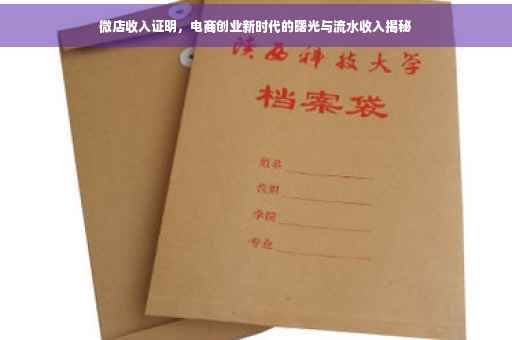 微店收入证明，电商创业新时代的曙光与流水收入揭秘
陕西科技大学
档案袋
姓名
学院
专业